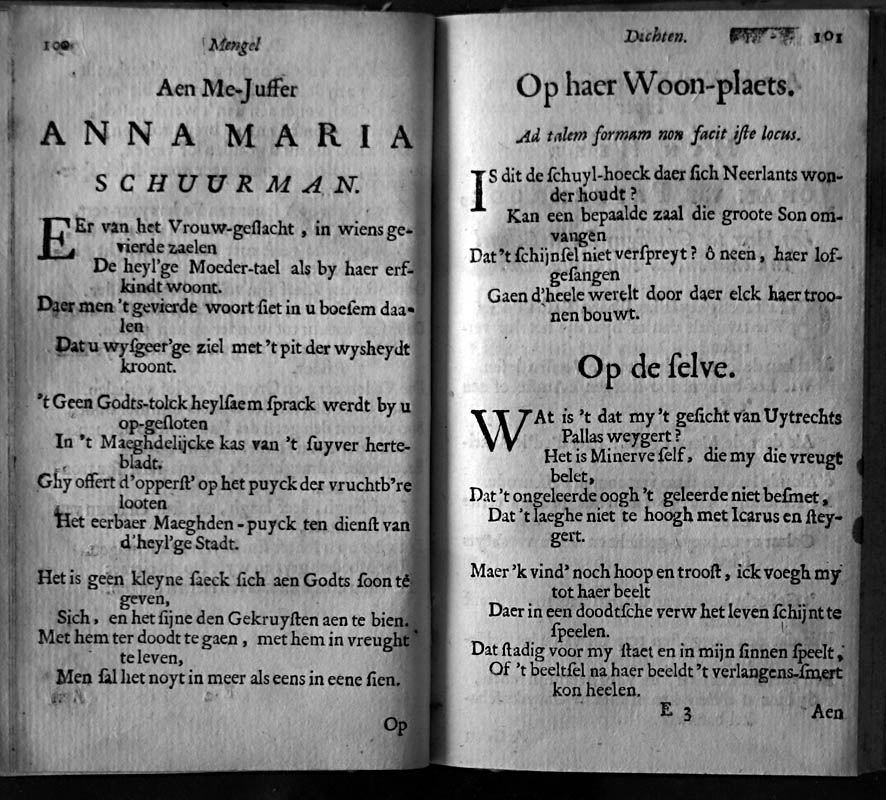 100 Mengel
Aen Me-Juffer
ANNA MARIA
SCHUURMAN.
EEr van het Vrouw-geſlacht, in wiens ge-
vierde zaelen
De heyl'ge Moeder-tael als by haer erf-
kindt woont.
Daer men 't gevierde woort ſiet in u boeſem daa-
len
Dat u wyſgeer'ge ziel met 't pit der wysheydt
kroont.
't Geen Godts-tolck heylſaem ſprack werdt by u
op-geſloten
In 't Maeghdelijcke kas van 't ſuyver herte-
bladt.
Ghy offert d'opperſt' op het puyck der vruchtb're
looten
Het eerbaer Maeghden-puyck ten dienſt van
d'heyl'ge Stadt.
Het is geen kleyne ſaeck ſich aen Godts ſoon te
geven,
Sich, en het ſijne den Gekruyſten aen te bien.
Met hem ter doodt te gaen, met hem in vreught
te leven,
Men ſal het noyt in meer als eens in eene ſien.
Op
Dichten. 101
Op haer Woon-plaets.
Ad talem formam non facit iſte locus.
IS dit de ſchuyl-hoeck daer ſich Neerlants won-
der houdt?
Kan een bepaalde zaal die groote Son om-
vangen
Dat 't ſchijnſel niet verſpreyt? ô neen, haer lof-
geſangen
Gaen d'heele werelt door daer elck haer troo-
nen bouwt.
Op de ſelve.
WAt is 't dat my 't geſicht van Uytrechts
Pallas weygert?
Het is Minerve ſelf, die my die vreugt
belet,
Dat 't ongeleerde oogh 't geleerde niet beſmet,
Dat 't laeghe niet te hoogh met Icarus en ſtey-
gert.
Maer 'k vind' noch hoop en trooſt, ick voegh my
tot haer beelt
Daer in een doodtſche verw het leven ſchijnt te
ſpeelen.
Dat ſtadig voor my ſtaet en in mijn ſinnen ſpeelt,
Of 't beeltſel na haer beeldt 't verlangens-ſmert
kon heelen.
E 3 Aen